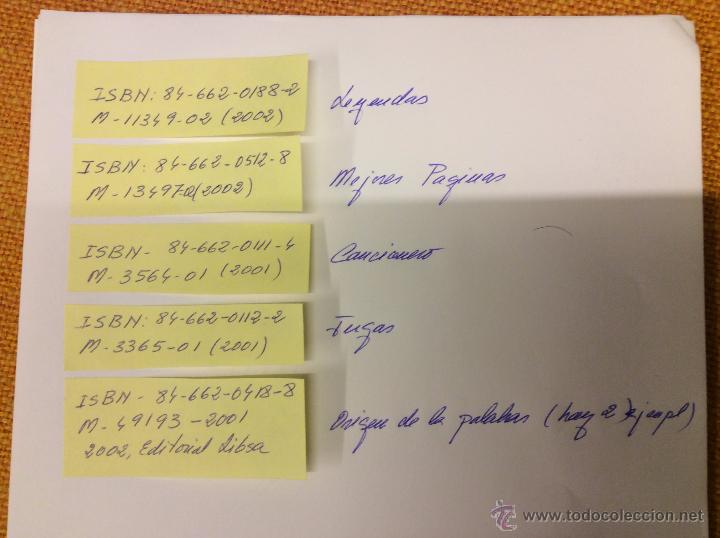 ISBN: 84-662-0188-2
M-11349-02 (2002)
Leyendas
ISBN: 84-662-0512-8
M-13497-02 (2002)
Mejores Paginas
ISBN- 84-662-0111-4
M-3564-01 (2001)
Cancionero
ISBN: 84-662-0112-2
M-3365-01 (2001)
Fugas
ISBN- 84-662-0418-8
M-49193-2001
2002, Editorial Libsa
Origen de la palabas (hay 2) ejempl)
www.todocoleccion.net